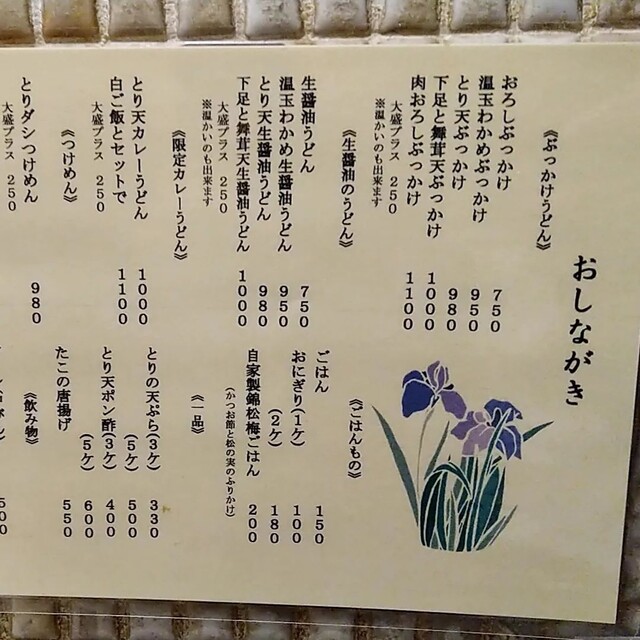 おしながき
《ぶっかけうどん》
おろしぶっかけ 750
温玉わかめぶっかけ 950
とり天ぶっかけ 980
下足と舞茸天ぶっかけ 1000
肉おろしぶっかけ 1100
大盛プラス 250
※温かいのも出来ます
《生醤油のうどん》
生醤油うどん 750
温玉わかめ生醤油うどん 950
とり天生醤油うどん 980
下足と舞茸天生醤油うどん 1000
大盛プラス 250
※温かいのも出来ます
《限定カレーうどん》
とり天カレーうどん 1000
白ご飯とセットで 1100
大盛プラス 250
《つけめん》
とりダシつけめん 980
大盛プラス 250
《ごはんもの》
ごはん 150
おにぎり(1ケ) 100
(2ケ) 180
自家製錦松梅ごはん 200
(かつお節と松の実のふりかけ)
《一品》
とりの天ぷら(3ケ) 330
(5ケ) 500
とり天ポン酢(3ケ) 400
(5ケ) 600
たこの唐揚げ 550
《飲み物》
500